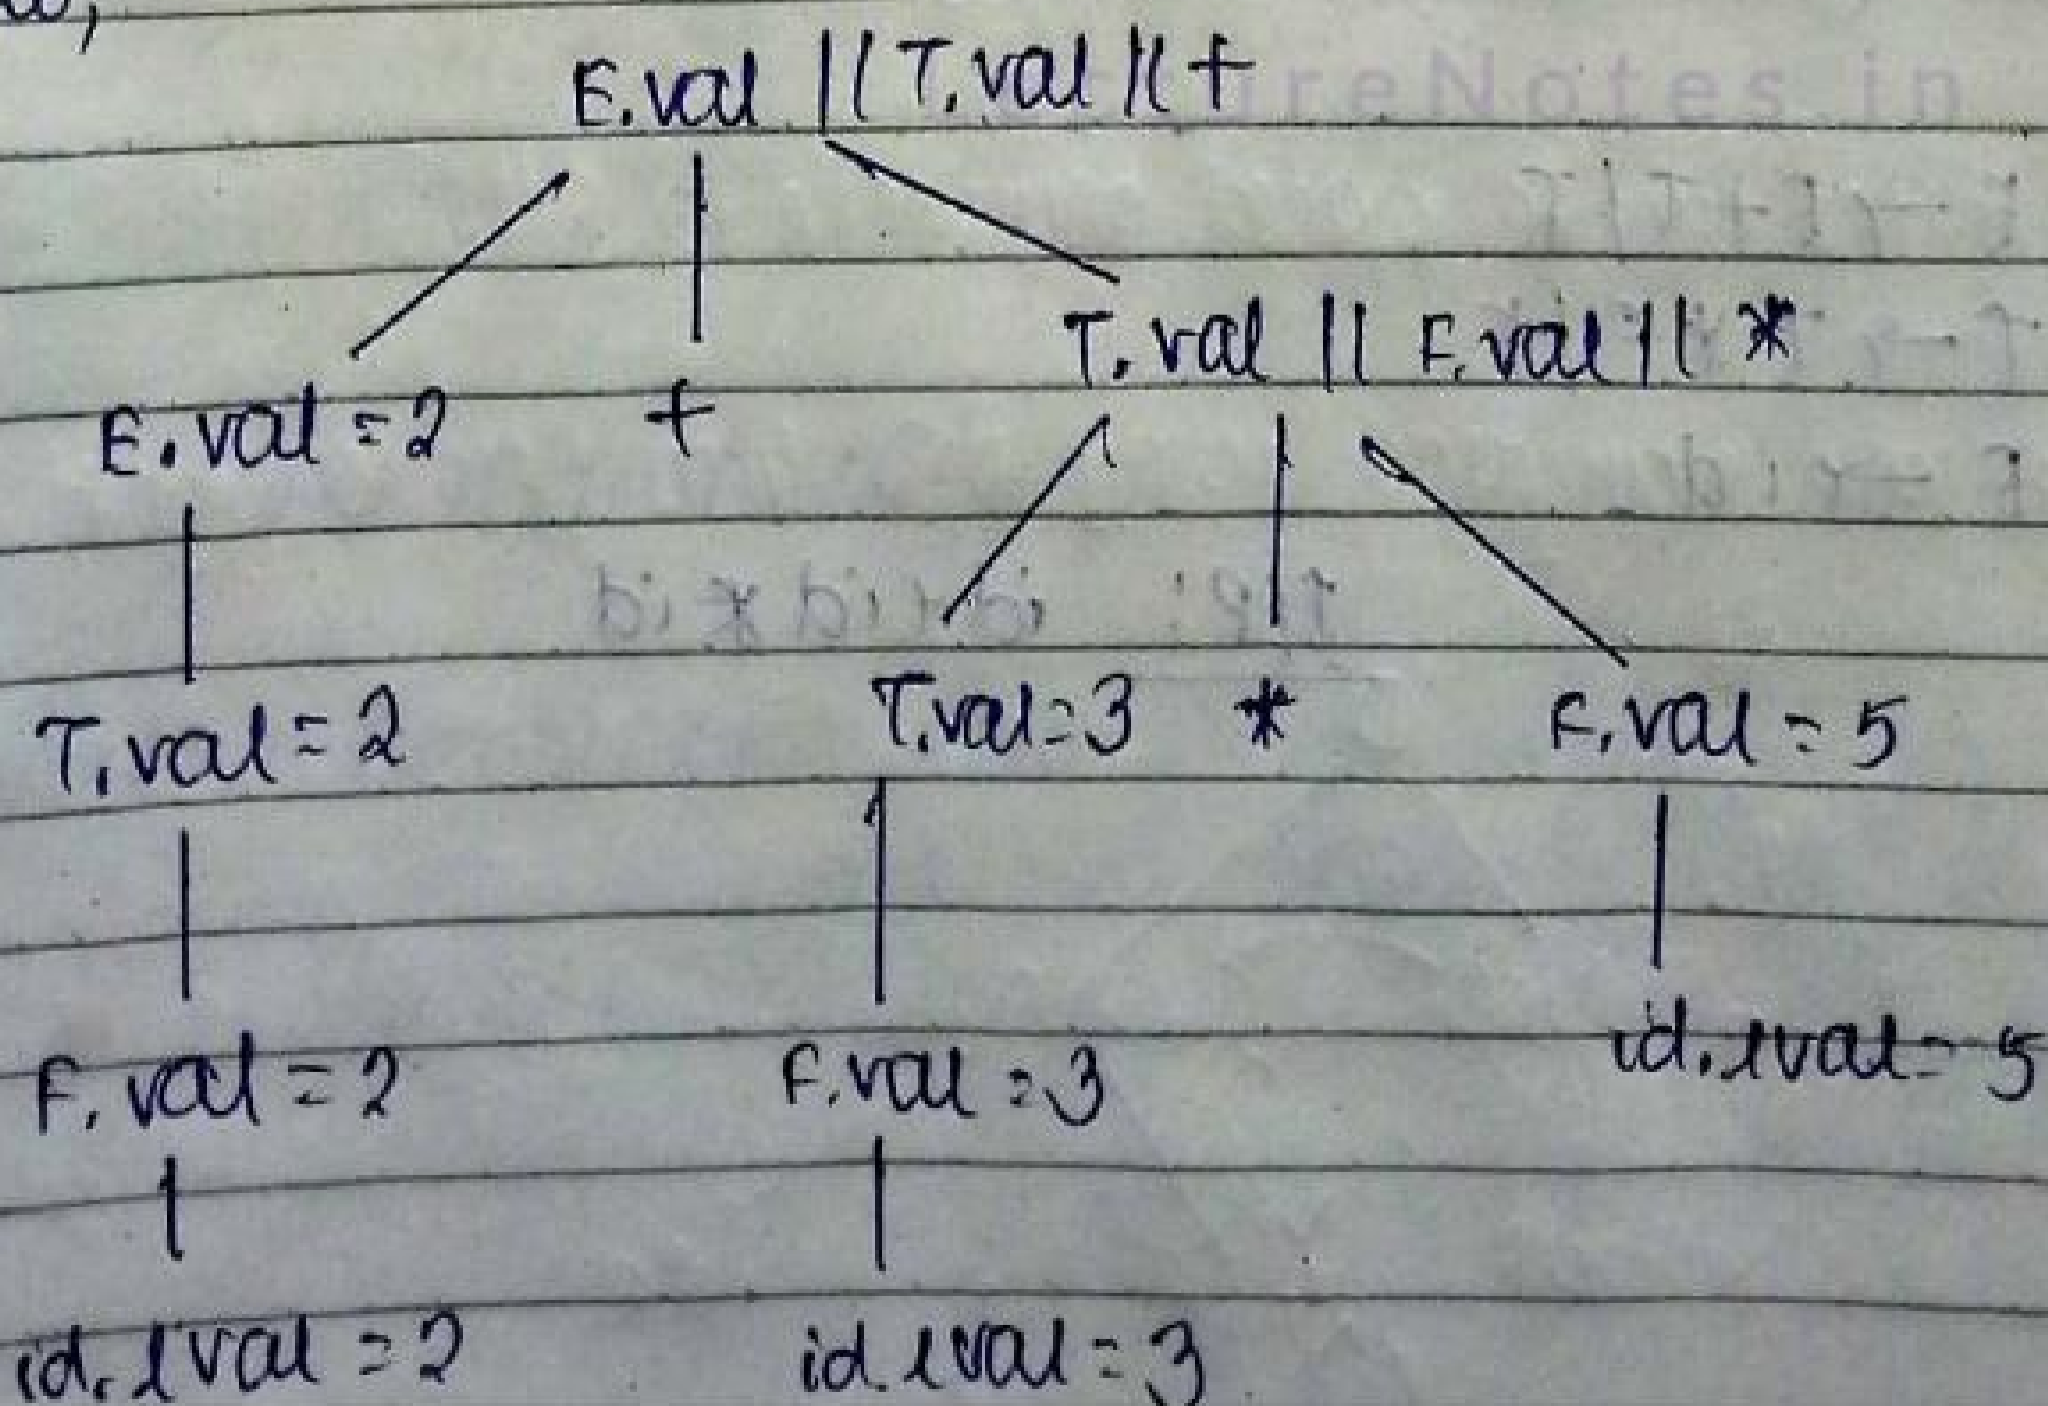 E.val || T.val || +
T.val || F.val || *
E.val = 2 +
T.val = 2 T.val = 3 * F.val = 5
F.val = 2 F.val = 3 id.lval = 5
id.lval = 2 id.lval = 3